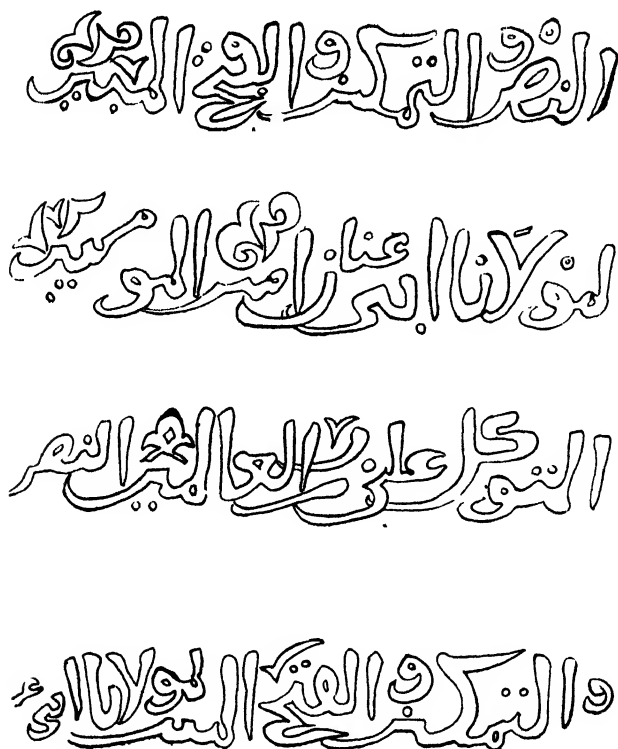 النصر والتمكين والفتح المبين
لمولانا ابى عنان امير المومنين
المتوكل على رب العالمين النصر
والتمكين والفتح المبين لمولانا ابى